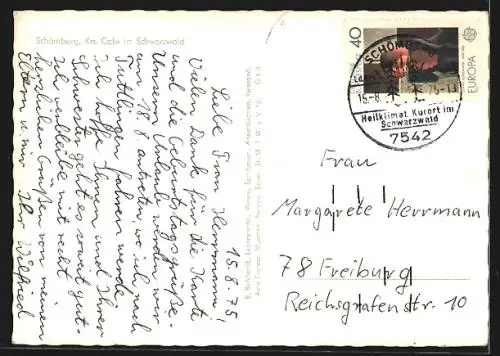 Schömberg, Krs. Calw im Schwarzwald
15.8.75
Liebe Frau Herrmann!
Vielen Dank für die Karte
und die Geburtstagsgrüße.
Unseren Urlaub werden wir
am 18.8 antreten, wo ich nach
Tuttlingen fahren werde.
Ich hoffe Ihnen und Ihrer
Schwester geht es soweit gut.
Ich verbleibe mit recht
herzlichen Grüßen von meinen
Eltern u. mir Ihr Wilfried
40
EUROPA
SCHÖMBERG
15.-8. 75-13
Heilklimat. Kurort im
Schwarzwald
7542
Frau
Margarete Herrmann
78 Freiburg
Reichsgrafenstr. 10